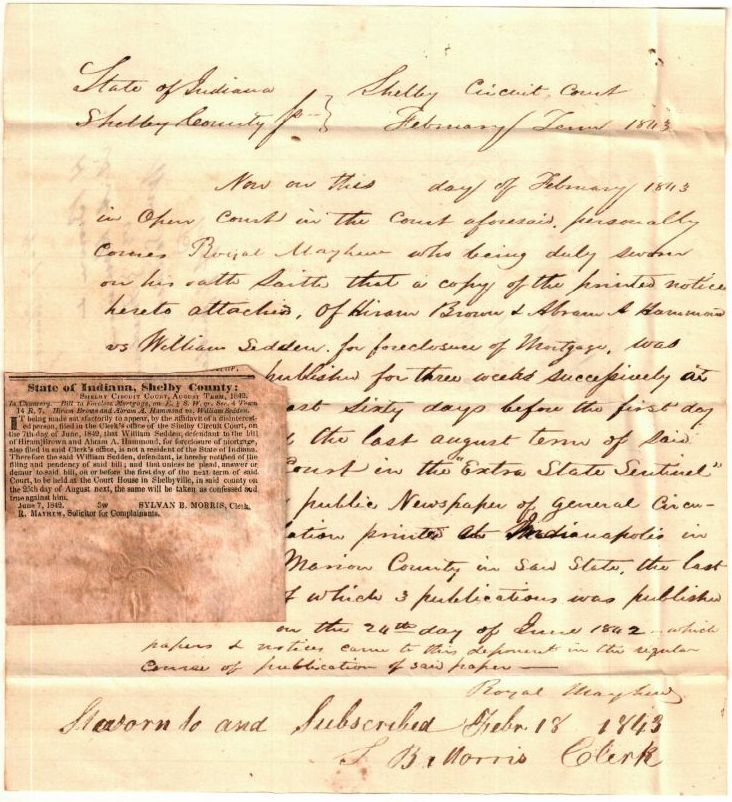 State of Indiana } Shelby Circuit Court
Shelby County } February Term 1843
Now on this day of February 1843
in Open Court in the Court aforesaid, personally
comes Royal Mayhew who being duly sworn
on his oath saith that a copy of the printed notice
hereto attached, of Hiram Brown & Abram A Hammond
vs William Sedden for foreclosure of Mortgage, was
published for three weeks successively at
ast sixty days before the first day
the last august term of said
Court in the "Extra State Sentinel"
public Newspaper of General Circu-
lation printed at Indianapolis in
Marion County in said State, the last
of which 3 publications was published
on the 24th day of June 1842 - which
papers & notices came to this deponent in the regular
course of publication of said paper —
Royal Mayhew
Sworn to and Subscribed Febr 18 1843
S B Morris Clerk
State of Indiana, Shelby County:
SHELBY CIRCUIT COURT, AUGUST TERM, 1842.
In Chancery.—Bill to Foreclose Mortgage, on E. ½ S. W. qr. Sec. 4 Town
14 R. 7. Hiram Brown and Abram A. Hammond vs. William Sedden.
IT being made satisfactorily to appear, by the affidavit of a disinterest-
ed person, filed in the Clerk's office of the Shelby Circuit Court, on
the 7th day of June, 1842, that William Sedden, defendant to the bill
of Hiram Brown and Abram A. Hammond, for foreclosure of mortgage,
also filed in said Clerk's office, is not a resident of the State of Indiana.
Therefore the said William Sedden, defendant, is hereby notified of the
filing and pendency of said bill; and that unless he plead, answer or
demur to said bill, on or before the first day of the next term of said
Court, to be held at the Court House in Shelbyville, in said county on
the 25th day of August next, the same will be taken as confessed and
true against him.
June 7, 1842. 5w SYLVAN B. MORRIS, Clerk.
R. MAYHEW, Solicitor for Complainants.